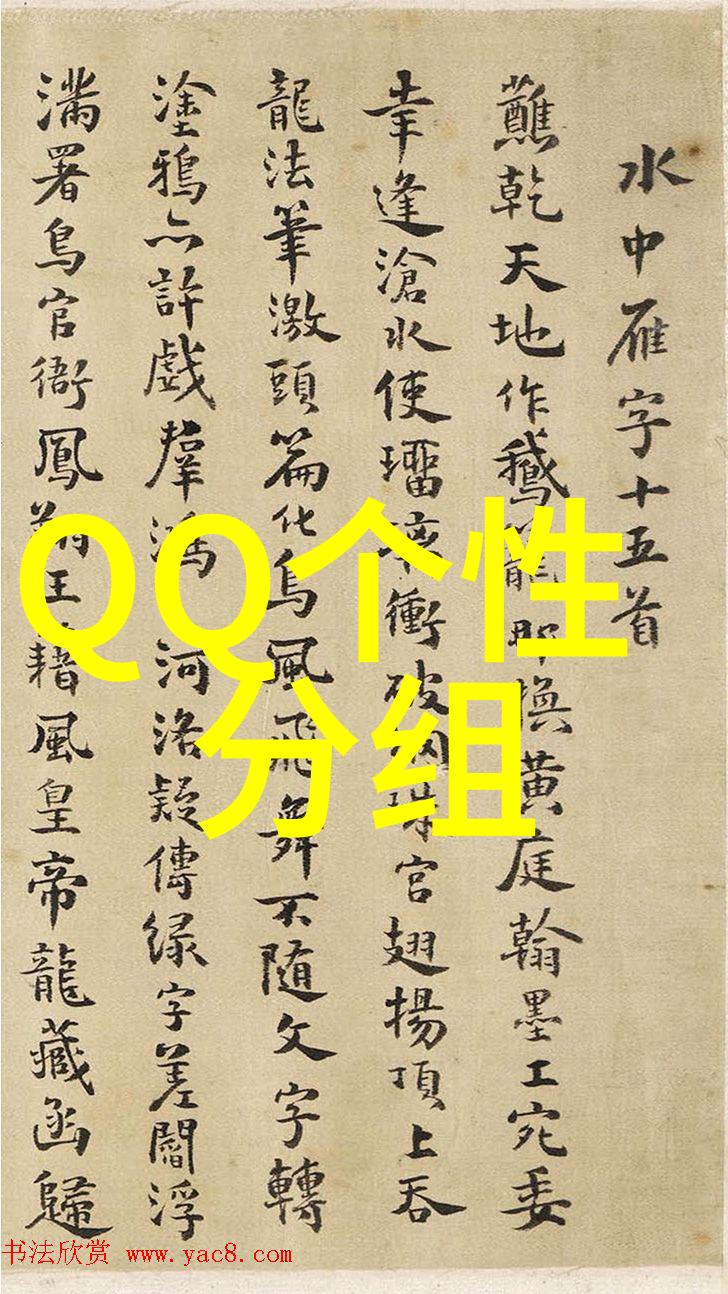 水中雁字十五首
蘸乾天地作鵝籠那換黃庭翰墨工宛委
幸逢滄水使璢衝破珠宮翅揚頂上吞
龍法筆激頭篇化鳥風飛舞不随文字轉
塗鴉亦許戲羣鴻 河洛疑傳緑字差閻浮
滿署鳥官銜鳳王籍風皇帝龍藏函歸
QQ个性
分组
书法欣赏 www.yac8.com